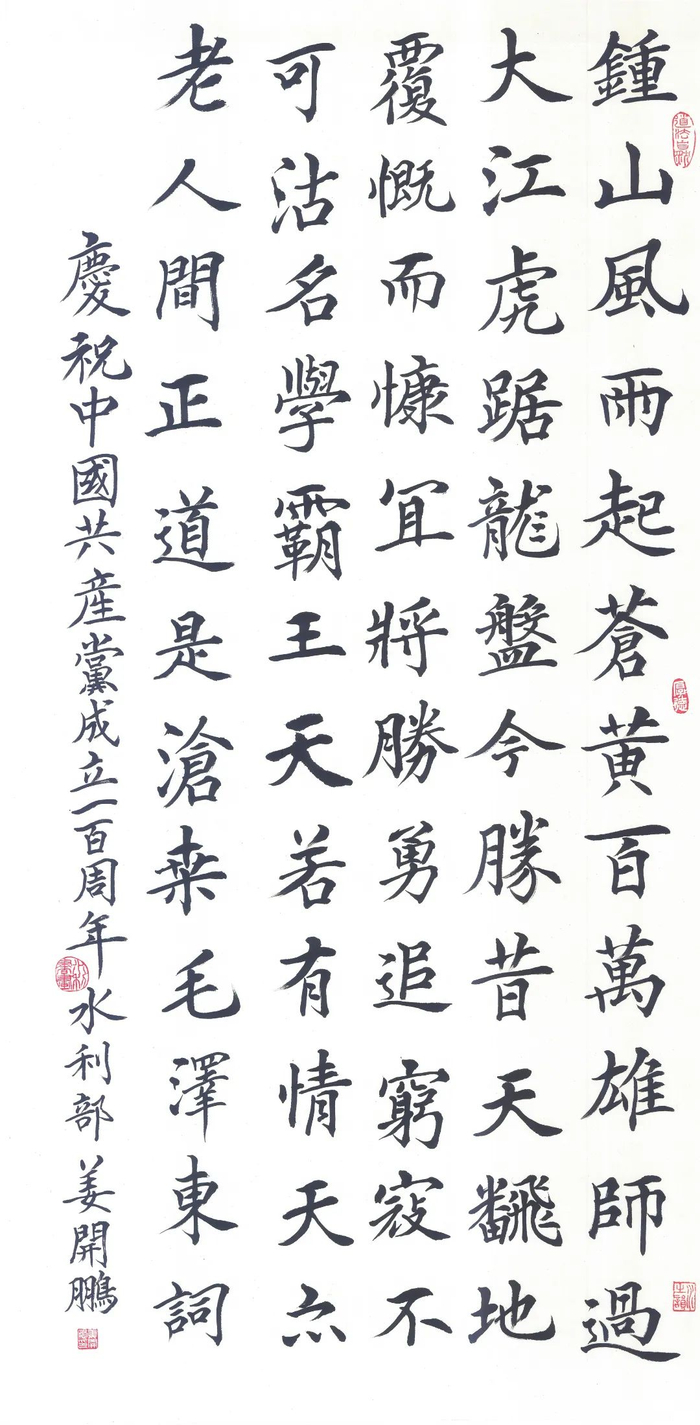 鍾山風雨起蒼黃百萬雄師過
大江虎踞龍盤今勝昔天飜地
覆慨而慷冝將勝勇追窮寇不
可沽名學霸王天若有情天亦
老人間正道是滄桒毛澤東詞
慶祝中國共産黨成立一百周年水利部姜開鵬